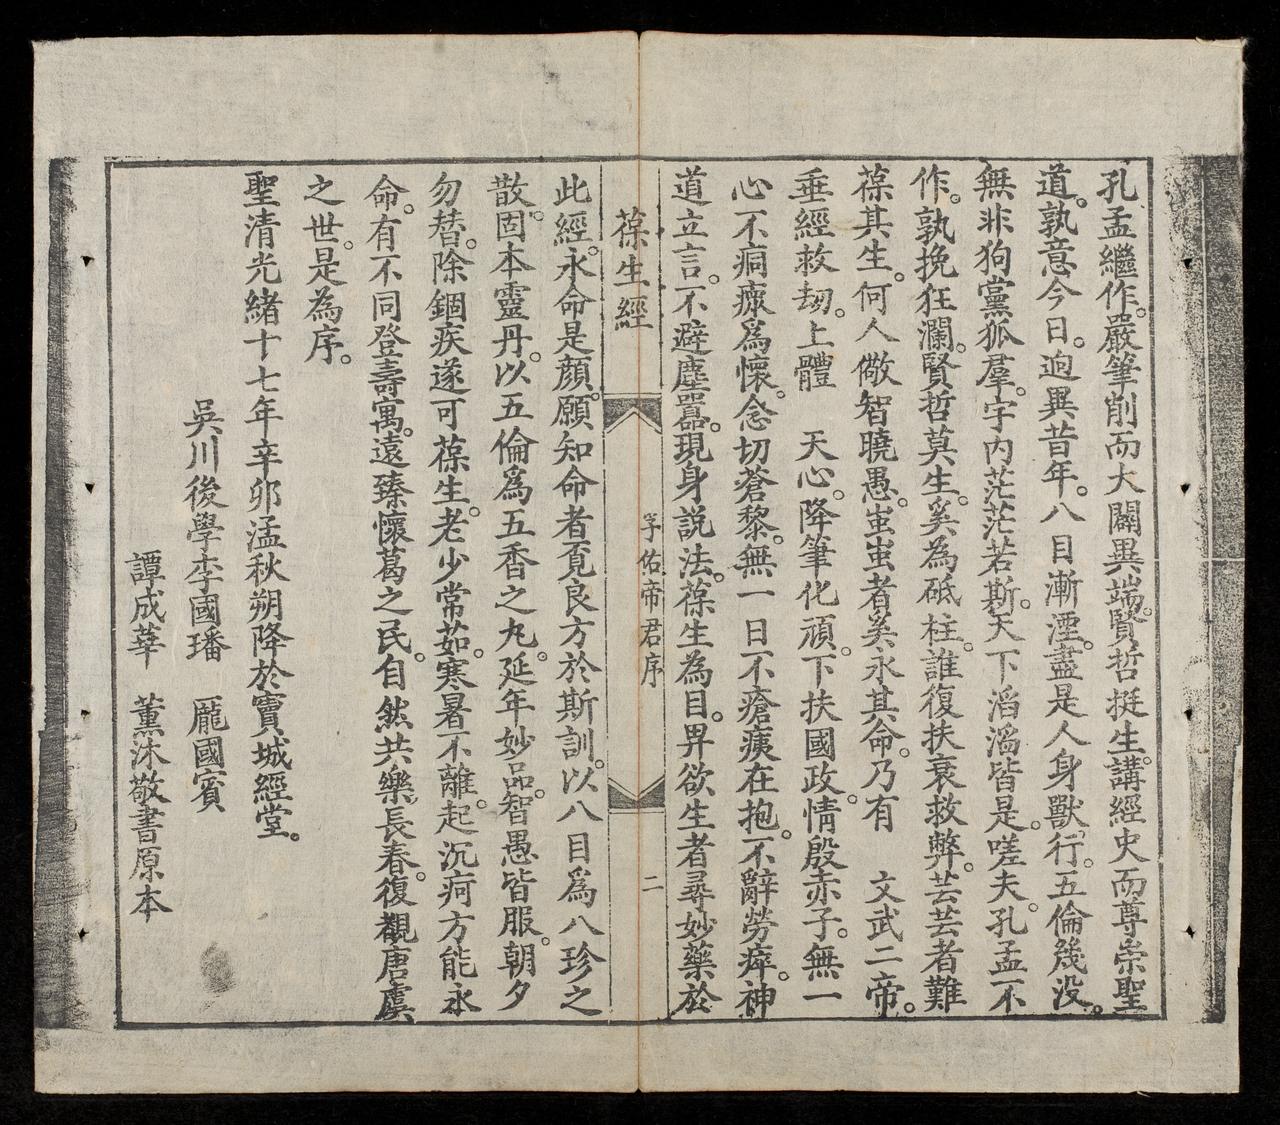 孔孟繼作。嚴筆削而大闢異端。賢哲挺生。講經史而尊崇聖
道。孰意今日。逈異昔年。八目漸湮。盡是人身獸行。五倫幾沒。
無非狗黨狐羣。宇內茫茫若斯。天下滔滔皆是。嗟夫。孔孟不
作。孰挽狂瀾。賢哲莫生。奚為砥柱。誰復扶衰救弊。芸芸者難
葆其生。何人儆智曉愚。蚩蚩者奚永其命。乃有　文武二帝。
垂經救劫。上體　天心。降筆化頑。下扶國政。情殷赤子。無一
心不痌瘝爲懷。念切蒼黎。無一日不瘡痍在抱。不辭勞瘁。神
道立言。不避塵囂。現身說法。葆生為目。畀欲生者尋妙藥於
葆生經
孚佑帝君序
二
此經。永命是顏。願知命者覓良方於斯訓。以八目爲八珍之
散。固本靈丹。以五倫爲五香之丸。延年妙品。智愚皆服。朝夕
勿替。除錮疾遂可葆生。老少常茹。寒暑不離。起沉疴方能永
命。有不同登壽寓。遠臻懷葛之民。自然共樂長春。復覩唐虞
之世。是為序。
聖清光緒十七年辛卯孟秋朔降於寶城經堂。
吳川後學李國璠　龐國賓
譚成華　薰沐敬書原本